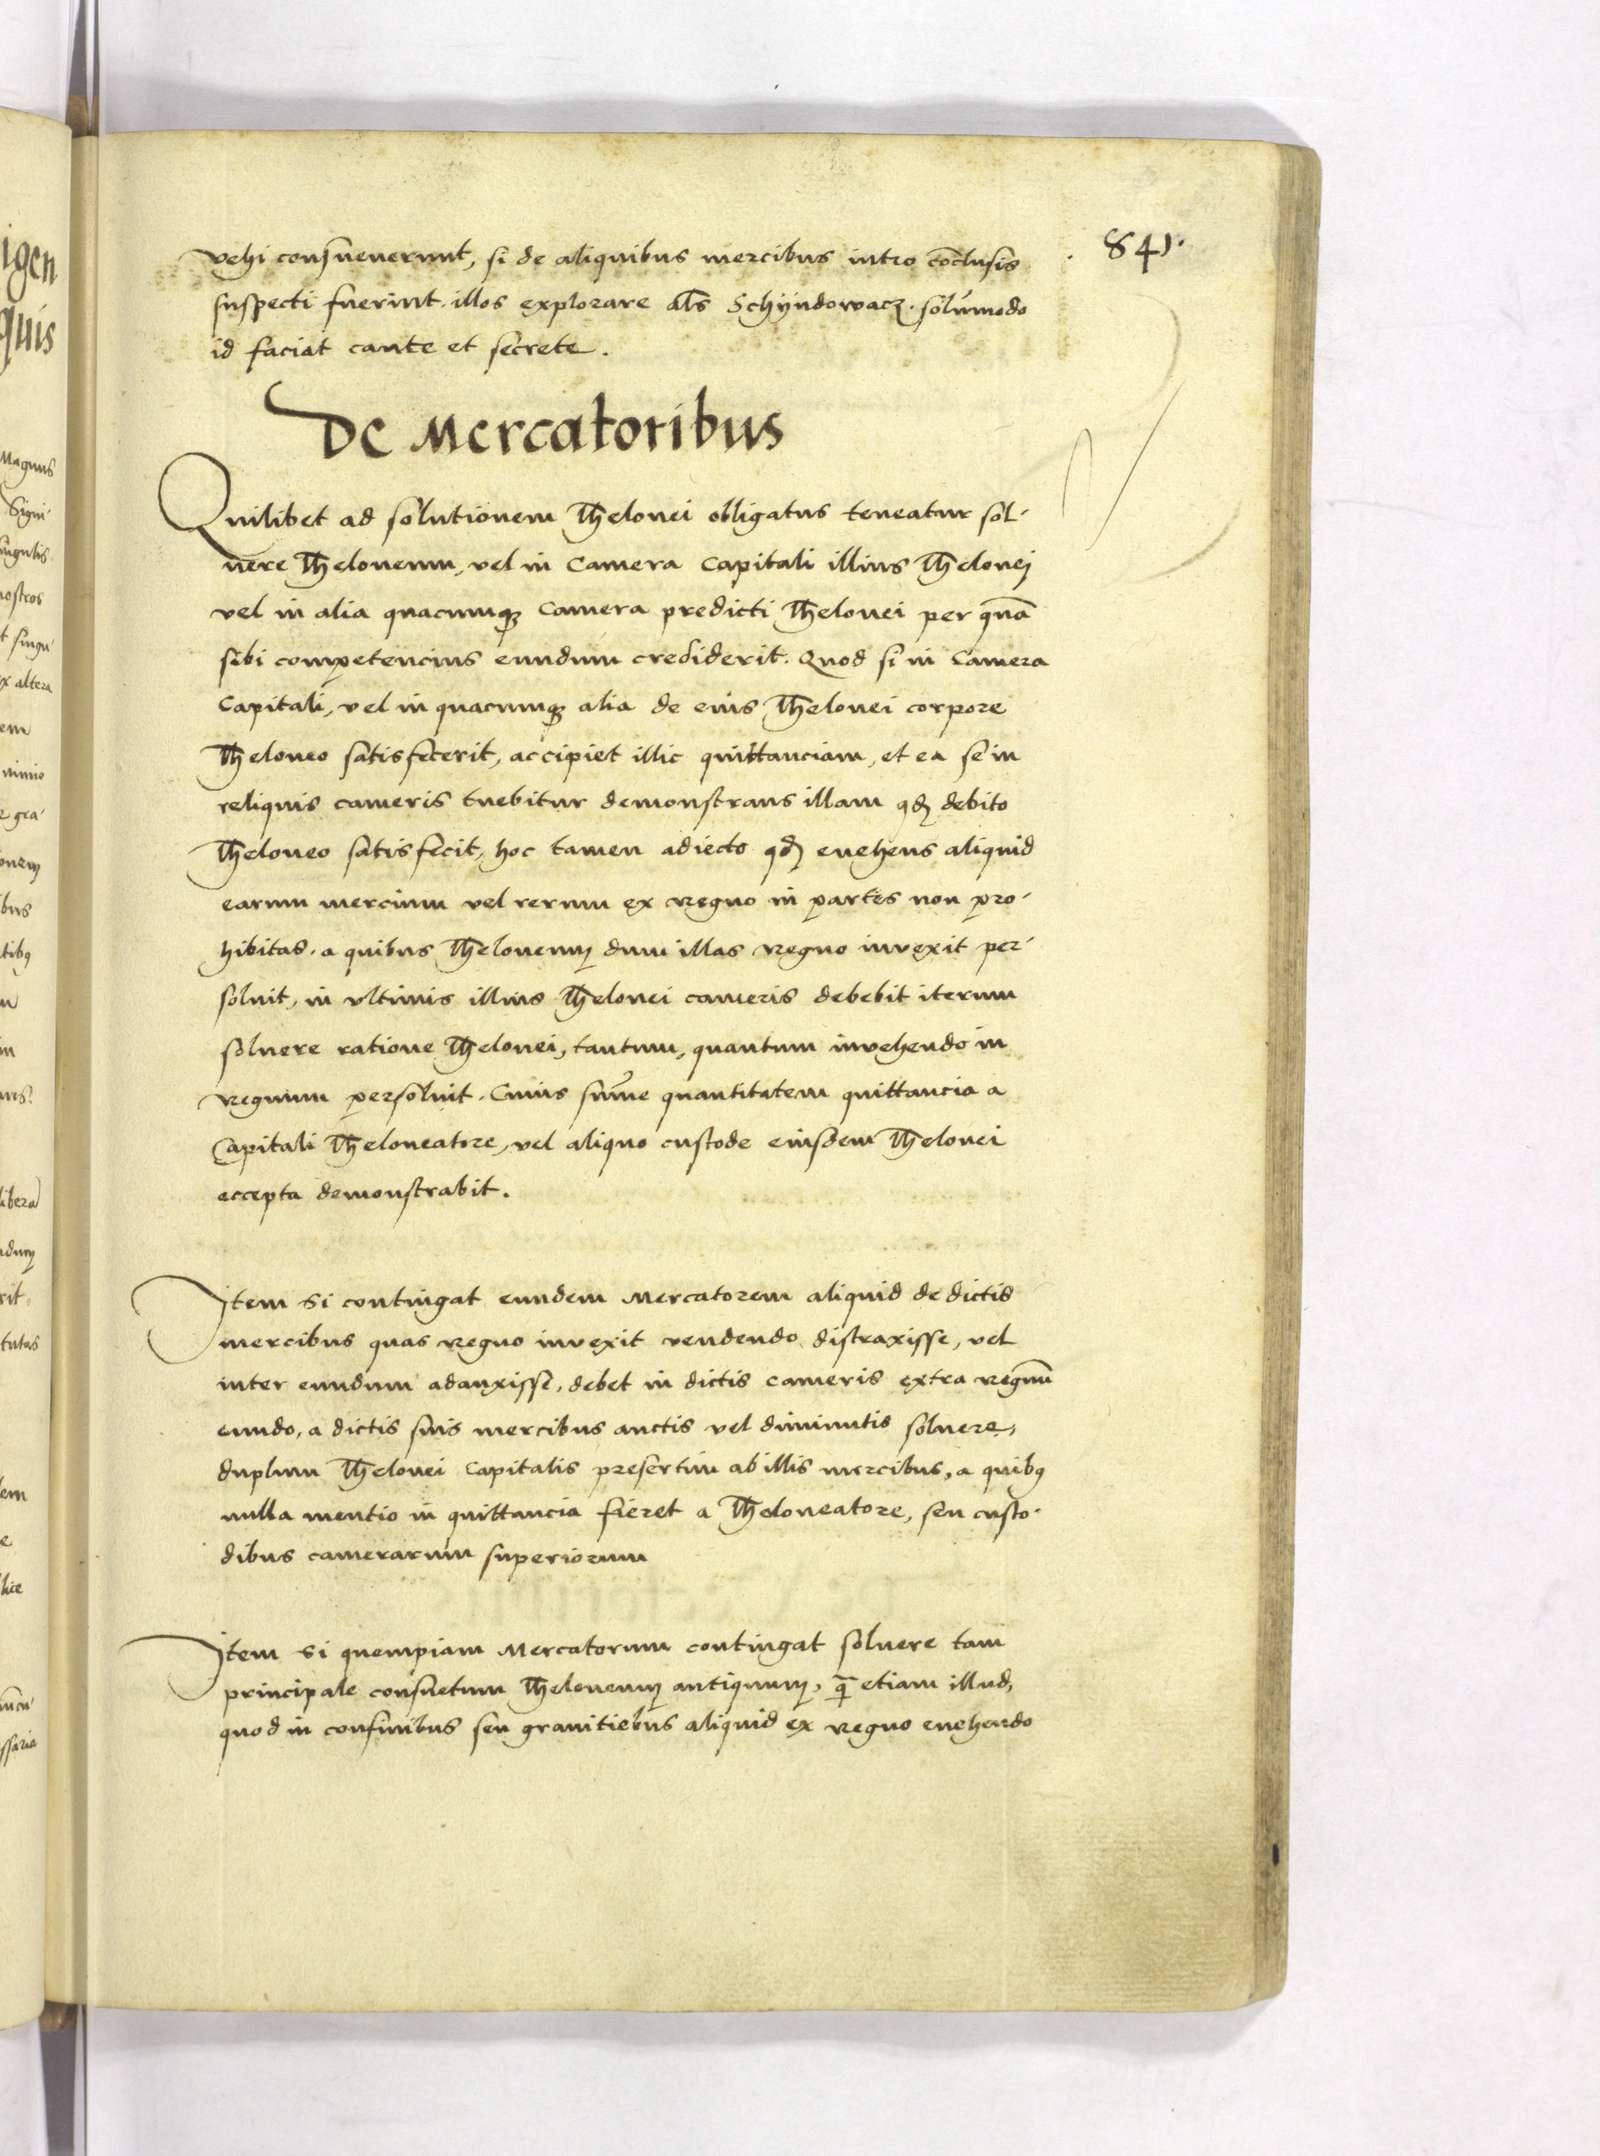 841.
vehi consueverunt, si de aliquibus mercibus intro conclusis
suspecti fuerint. illos explorare als Schyndowacz. solumodo
id faciat caute et secrete.
De Mercatoribus
Quilibet ad solutionem Thelonei obligatus teneatur sol-
uere Theloneum, vel in Camera Capitali illius Thelonei
vel in alia quacumque Camera predicti Thelonei per quam
sibi competencius eundum crediderit. Quod si in Camera
Capitali, vel in quacumque alia de eius Thelonei corpore
Theloneo satisfecerit, accipiet illic quittanciam, et ea se in
reliquis cameris tuebitur demonstrans illam qd debito
Theloneo satisfecit, hoc tamen adiecto qd euehens aliquid
earum mercium vel rerum ex regno in partes non pro-
hibitas. a quibus Theloneum dum illas regno invexit per-
soluit, in vltimis illius Thelonei cameris debebit iterum
soluere ratione Thelonei, tantum, quantum invehendo in
regnum persoluit. Cuius summe quantitatem quittancia a
Capitali Theloneatore, vel aliquo custode eiusdem Thelonei
accepta demonstrabit.
Item Si contingat eundem Mercatorem aliquid de dictis
mercibus quas regno invexit vendendo distraxisse, vel
inter eundum adauxisse, debet in dictis cameris extra regnum
eundo, a dictis suis mercibus auctis vel diminutis soluere,
duplum Thelonei Capitalis presertim ab illis mercibus, a quibus
nulla mentio in quittancia fieret a Theloneatore, seu custo-
dibus camerarum superiorum
Item Si quempiam Mercatorum contingat soluere tam
principale consuetum Theloneum antiquum, quam etiam illud,
quod in confinibus seu granitiebus aliquid ex regno euehendo